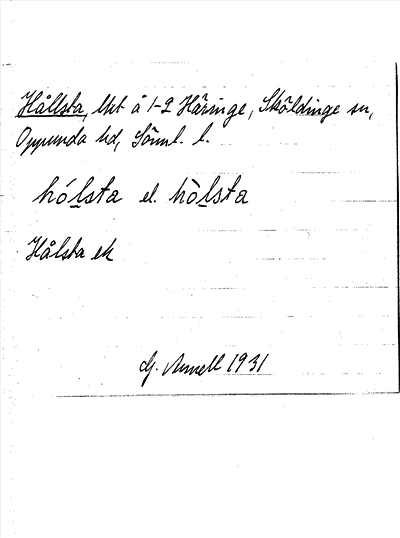 Hållsta, lht å 1-2 Häringe, Sköldinge sn,
Oppunda hd, Söml. l.
hólsta el. hòlsta
Hålsta ek
G. Annell 1931